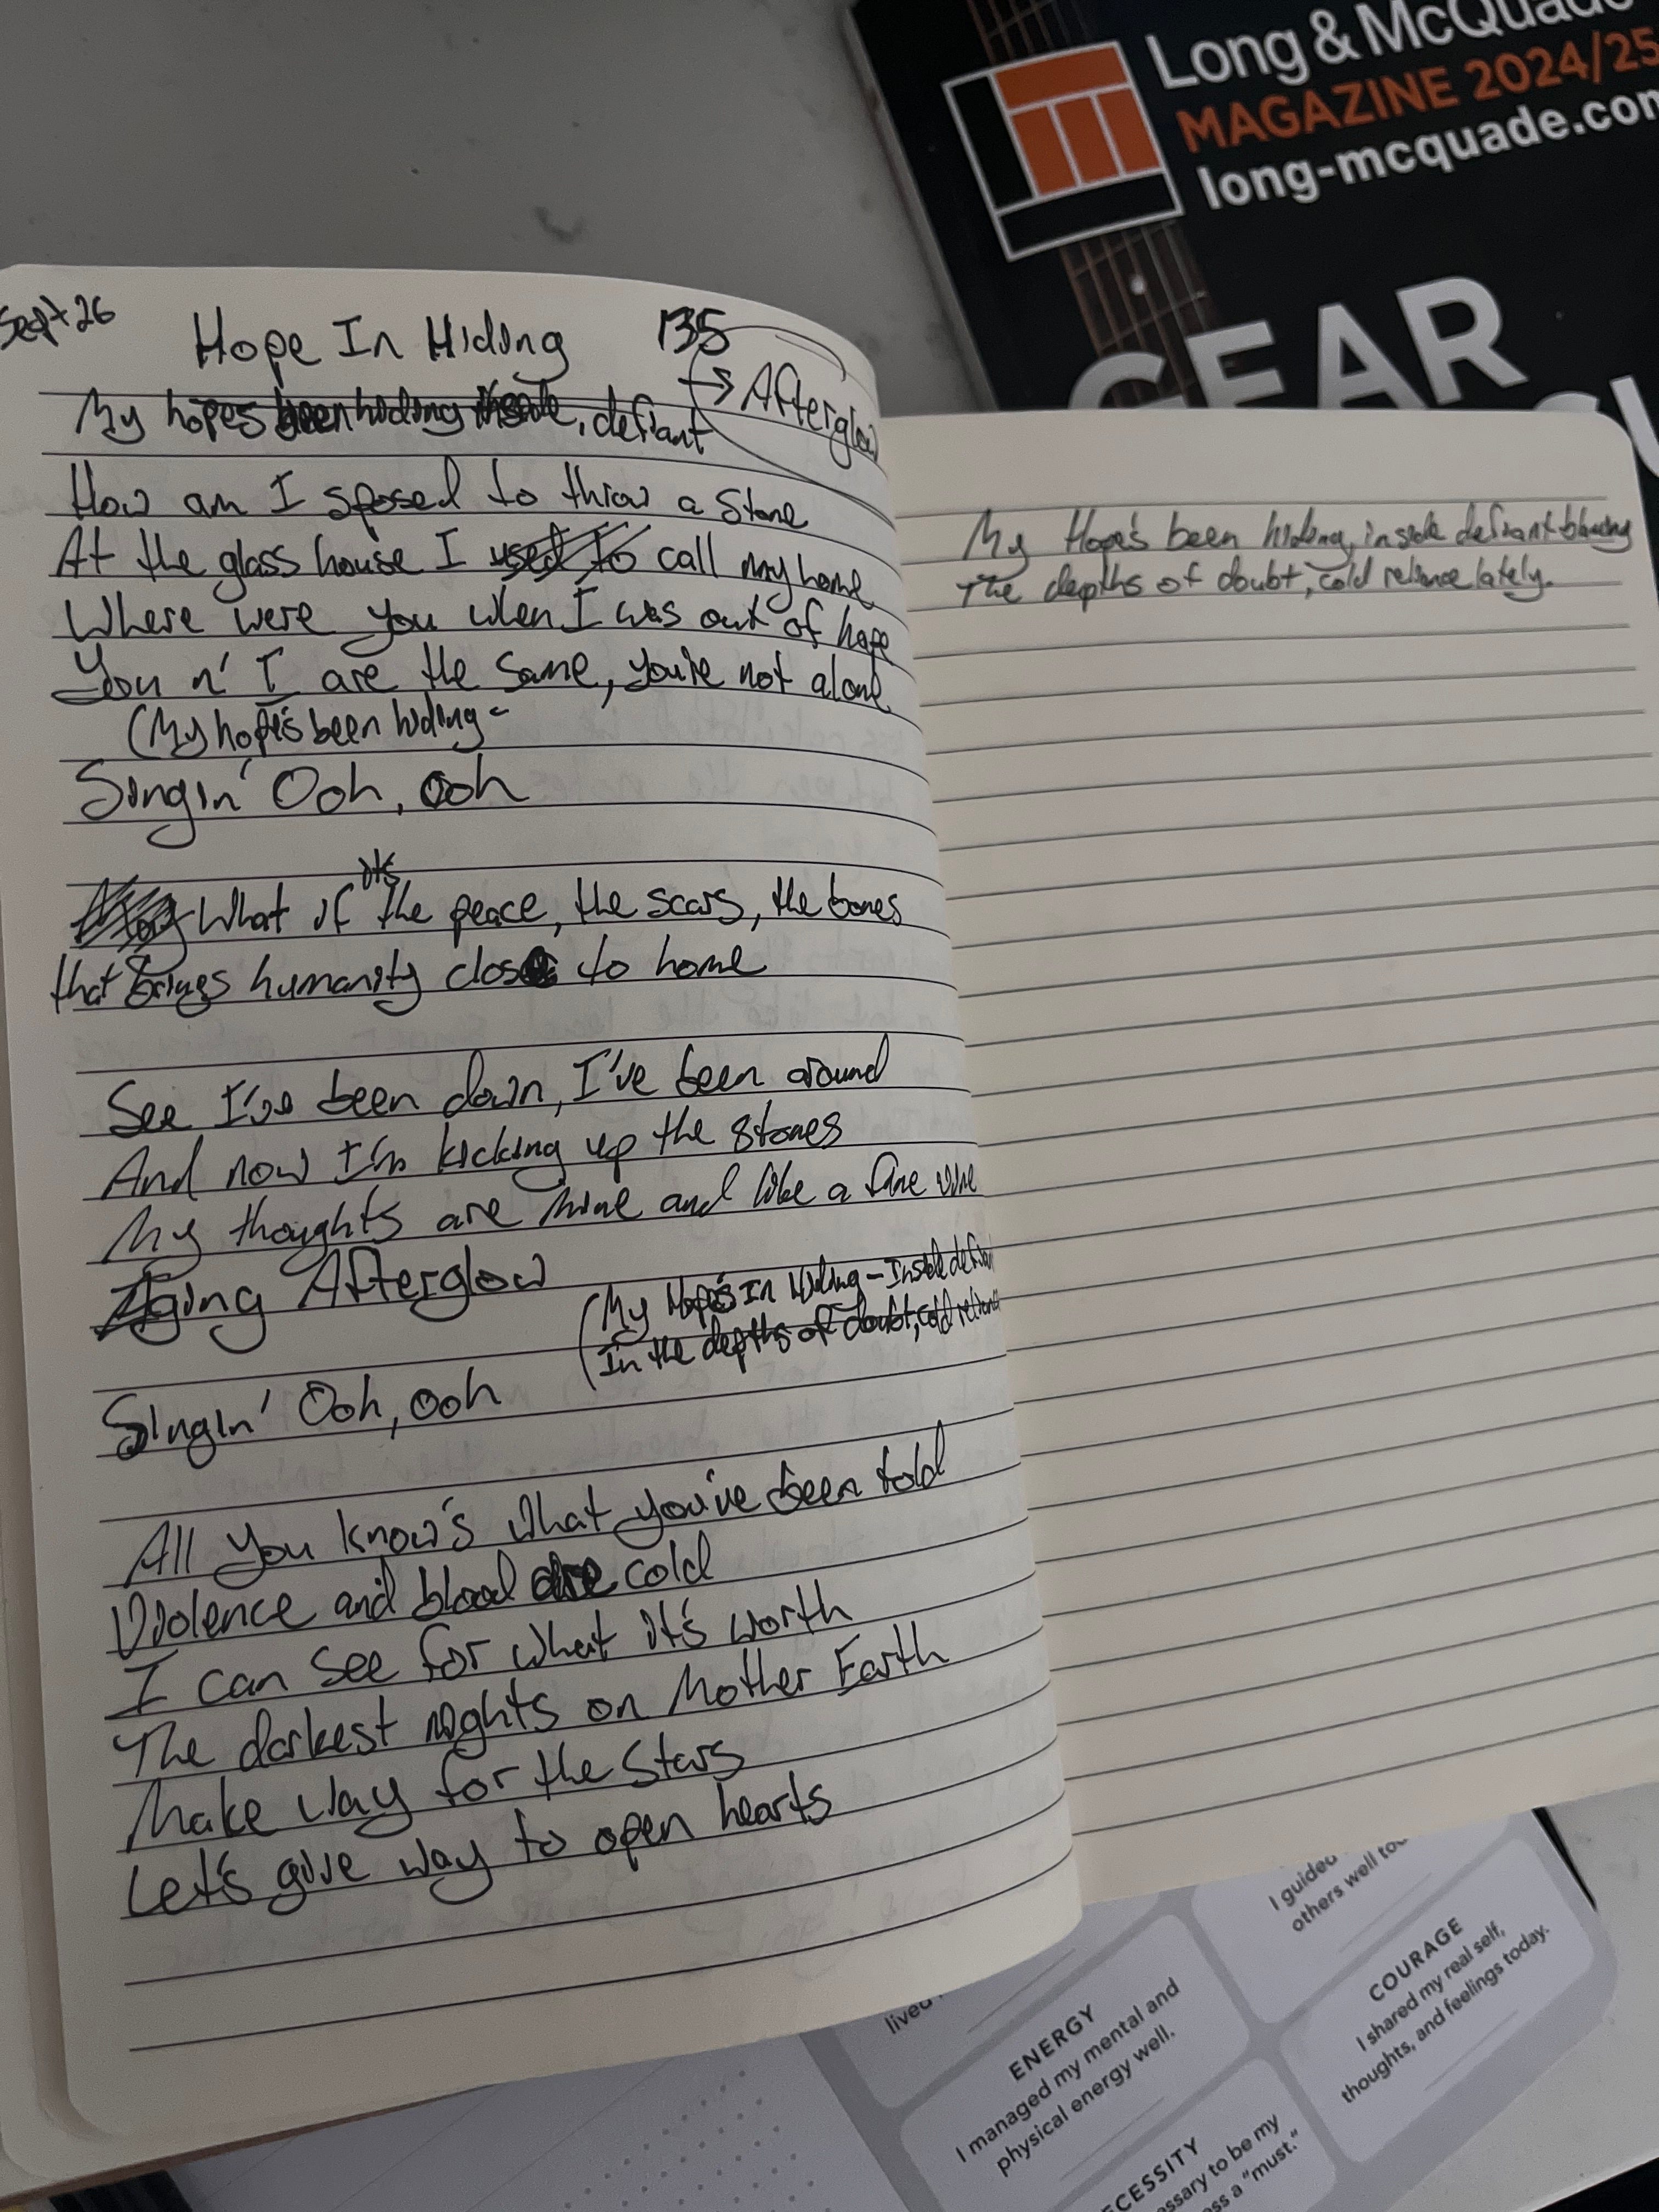 Long & McQuade
MAGAZINE 2024/25
long-mcquade.com
GEAR
Sept 26
Hope In Hiding
135
→ Afterglow
My hopes been hiding inside, defiant
How am I sposed to throw a stone
At the glass house I used to call my home
Where were you when I was out of hope
You n' I are the same, you're not alone
(My hope's been hiding -
Singin' Ooh, ooh
What if it's the peace, the scars, the bones
that brings humanity close to home
See I've been down, I've been around
And now I'm kicking up the stones
My thoughts are mine and like a fine wine
Aging Afterglow
(My Hope's In Hiding - Inside defiant
In the depths of doubt, cold reliance
Singin' Ooh, ooh
All you know's what you've been told
Violence and blood cold
I can see for what it's worth
The darkest nights on Mother Earth
Make way for the stars
Let's give way to open hearts
My Hope's been hiding, inside defiant
The depths of doubt, cold reliance lately.
I guided
others well
lived
ENERGY
I managed my mental and
physical energy well.
COURAGE
I shared my real self,
thoughts, and feelings today.
CESSITY
ssary to be my
ss a "must."